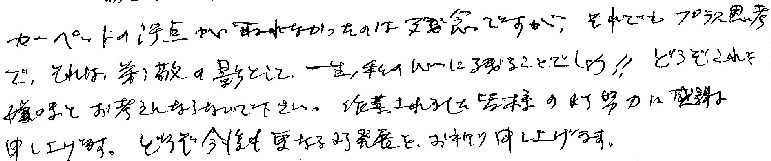 カーペットの汚点が取れなかったのは残念ですが、それでもプラス思考
で、それは、素敵の影として、一生、私の心に残ることでしょう!! どうぞこれを
嫌味とお考えにならないで下さい。作業されました皆様の御努力に感謝
申し上げます。どうぞ今後も更なる御発展を、お祈り申し上げます。